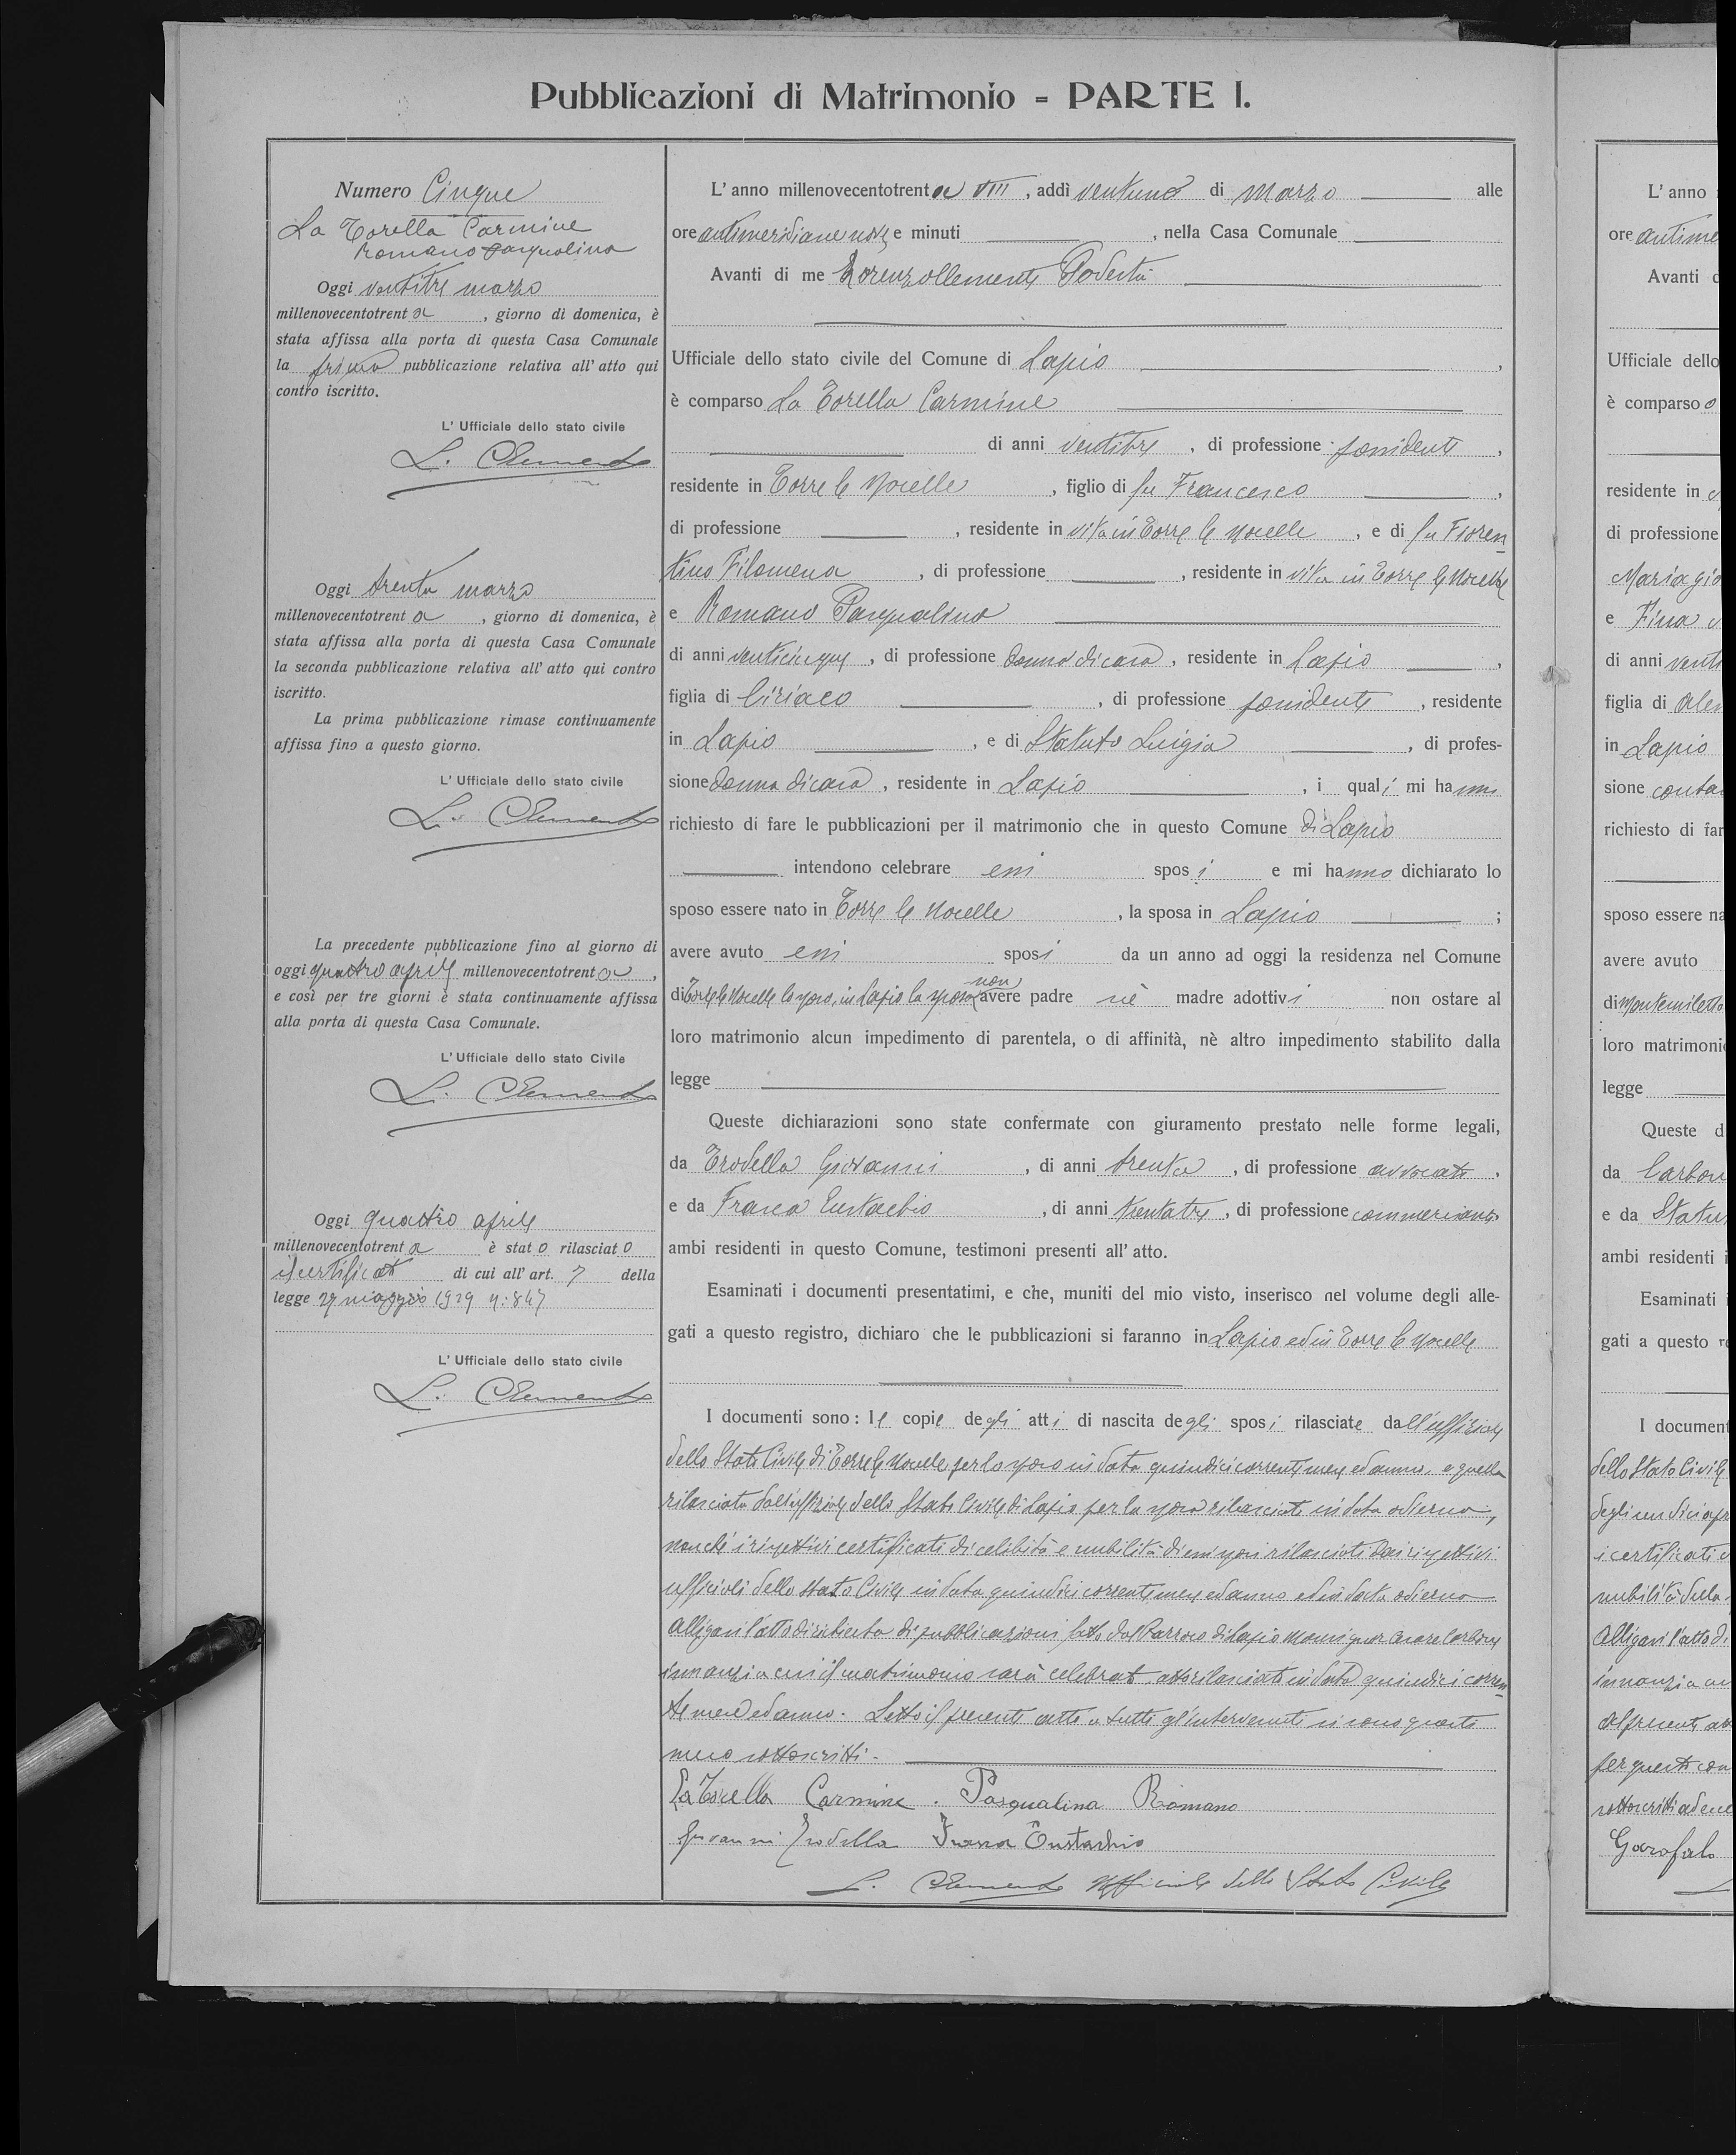 Pubblicazioni di Matrimonio - PARTE I.
Numero Cinque
La Torella Carmine
Romano Pasqualina
Oggi ventitre marzo
millenovecentotrenta, giorno di domenica, è
stata affissa alla porta di questa Casa Comunale
la prima pubblicazione relativa all'atto qui
contro iscritto.
L'Ufficiale dello stato civile
L. Clemente
Oggi trenta marzo
millenovecentotrenta, giorno di domenica, è
stata affissa alla porta di questa Casa Comunale
la seconda pubblicazione relativa all'atto qui contro
iscritto.
La prima pubblicazione rimase continuamente
affissa fino a questo giorno.
L'Ufficiale dello stato civile
L. Clemente
La precedente pubblicazione fino al giorno di
oggi quattro aprile millenovecentotrenta,
e così per tre giorni è stata continuamente affissa
alla porta di questa Casa Comunale.
L'Ufficiale dello stato Civile
L. Clemente
Oggi quattro aprile
millenovecentotrenta è stato rilasciato
il certificato di cui all'art. 7 della
legge 27 maggio 1929 n: 847
L'Ufficiale dello stato civile
L. Clemente
L'anno millenovecentotrenta VIII, addì ventuno di marzo alle
ore antimeridiane nove e minuti , nella Casa Comunale
Avanti di me Lorenzo Clemente Podestà
Ufficiale dello stato civile del Comune di Lapio,
è comparso La Torella Carmine
di anni ventitre, di professione possidente,
residente in Torre le Nocelle, figlio di fu Francesco,
di professione , residente in vita in Torre le Nocelle, e di fu Fioren=
tino Filomena, di professione , residente in vita in Torre le Nocelle
e Romano Pasqualina
di anni venticinque, di professione donna di casa, residente in Lapio,
figlia di Ciriaco, di professione possidente, residente
in Lapio, e di Statuto Luigia, di profes-
sione donna di casa, residente in Lapio, i quali mi hanno
richiesto di fare le pubblicazioni per il matrimonio che in questo Comune di Lapio
intendono celebrare essi sposi e mi hanno dichiarato lo
sposo essere nato in Torre le Nocelle, la sposa in Lapio;
avere avuto essi sposi da un anno ad oggi la residenza nel Comune
di Torre le Nocelle lo sposo, in Lapio la sposa non avere padre nè madre adottivi non ostare al
loro matrimonio alcun impedimento di parentela, o di affinità, nè altro impedimento stabilito dalla
legge
Queste dichiarazioni sono state confermate con giuramento prestato nelle forme legali,
da Trodella Giovanni, di anni trenta, di professione avvocato,
e da Frasca Eustachio, di anni trentatre, di professione commerciante
ambi residenti in questo Comune, testimoni presenti all'atto.
Esaminati i documenti presentatimi, e che, muniti del mio visto, inserisco nel volume degli alle-
gati a questo registro, dichiaro che le pubblicazioni si faranno in Lapio ed in Torre le Nocelle
I documenti sono: le copie degli atti di nascita degli sposi rilasciate dall'uffiziale
dello Stato Civile di Torre le Nocelle per lo sposo in data quindici corrente mese ed anno, e quella
rilasciata dall'uffiziale dello Stato Civile di Lapio per la sposa rilasciata in data odierna,
nonchè i rispettivi certificati di celibità e nubilità di essi sposi rilasciati dai rispettivi
ufficiali dello Stato Civile in data quindici corrente mese ed anno ed in data odierna
Alligasi l'atto di richiesta di pubblicazioni fatto dal Parroco di Lapio Monsignor Cesare Carbone
innanzi a cui il matrimonio sarà celebrato, atto rilasciato in data quindici corren=
te mese ed anno. Letto il presente atto a tutti gl'intervenuti si sono questi
meco sottoscritti.
La Torella Carmine. Pasqualina Romano
Giovanni Trodella Frasca Eustachio
L. Clemente Ufficiale dello Stato Civile
L'anno
ore antime
Avanti d
Ufficiale dello
è comparso
residente in
di professione
Mariagio
e Fina
di anni venti
figlia di
in Lapio
sione conta
richiesto di far
sposo essere na
avere avuto
di Montemiletto
loro matrimoni
legge
Queste d
da Carbon
e da Statu
ambi residenti i
Esaminati i
gati a questo r
I document
dello Stato Civile
degli undici apr
i certificati
nubilità della
Alligasi l'atto d
innanzi a cu
al presente at
per questi
sottoscritti
Garofalo